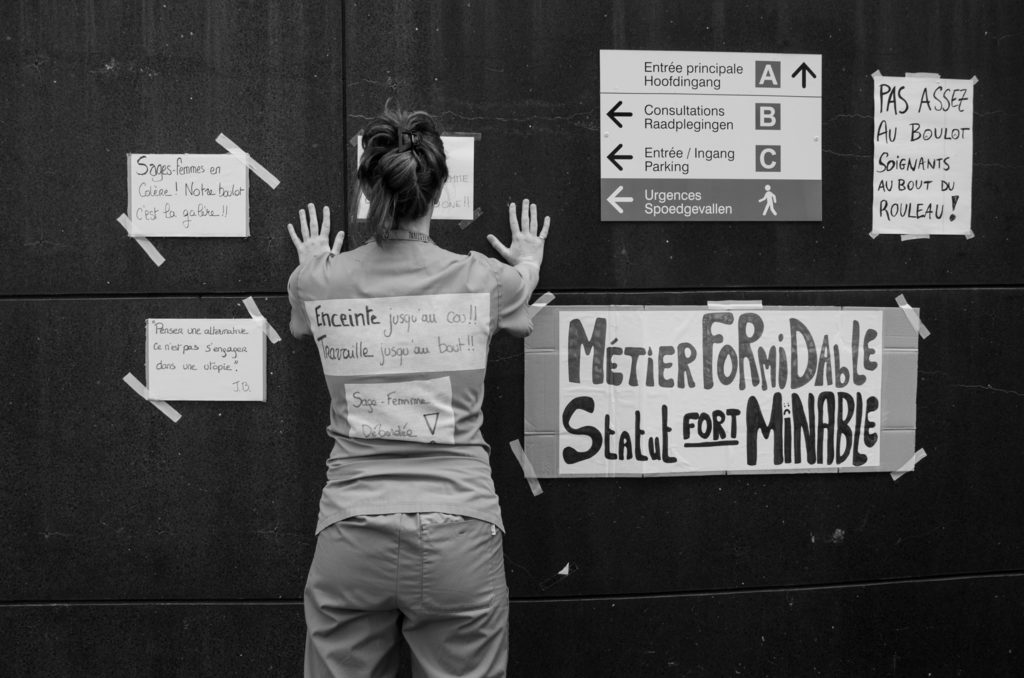 Sages-femmes en
Colère ! Notre boulot
c'est la galère !!
Entrée principale
Hoofdingang
A
Consultations
Raadplegingen
B
Entrée / Ingang
Parking
C
Urgences
Spoedgevallen
PAS ASSEZ
AU BOULOT
SOIGNANTS
AU BOUT DU
ROULEAU !
"Penser une alternative
Ce n'est pas s'engager
dans une utopie".
J.B.
Enceinte jusqu'au cou !!
Travaille jusqu'au bout !!
Sage-Femme
Débordée
MÉTIER FORMiDAbLE
Statut FORT MiNABLE